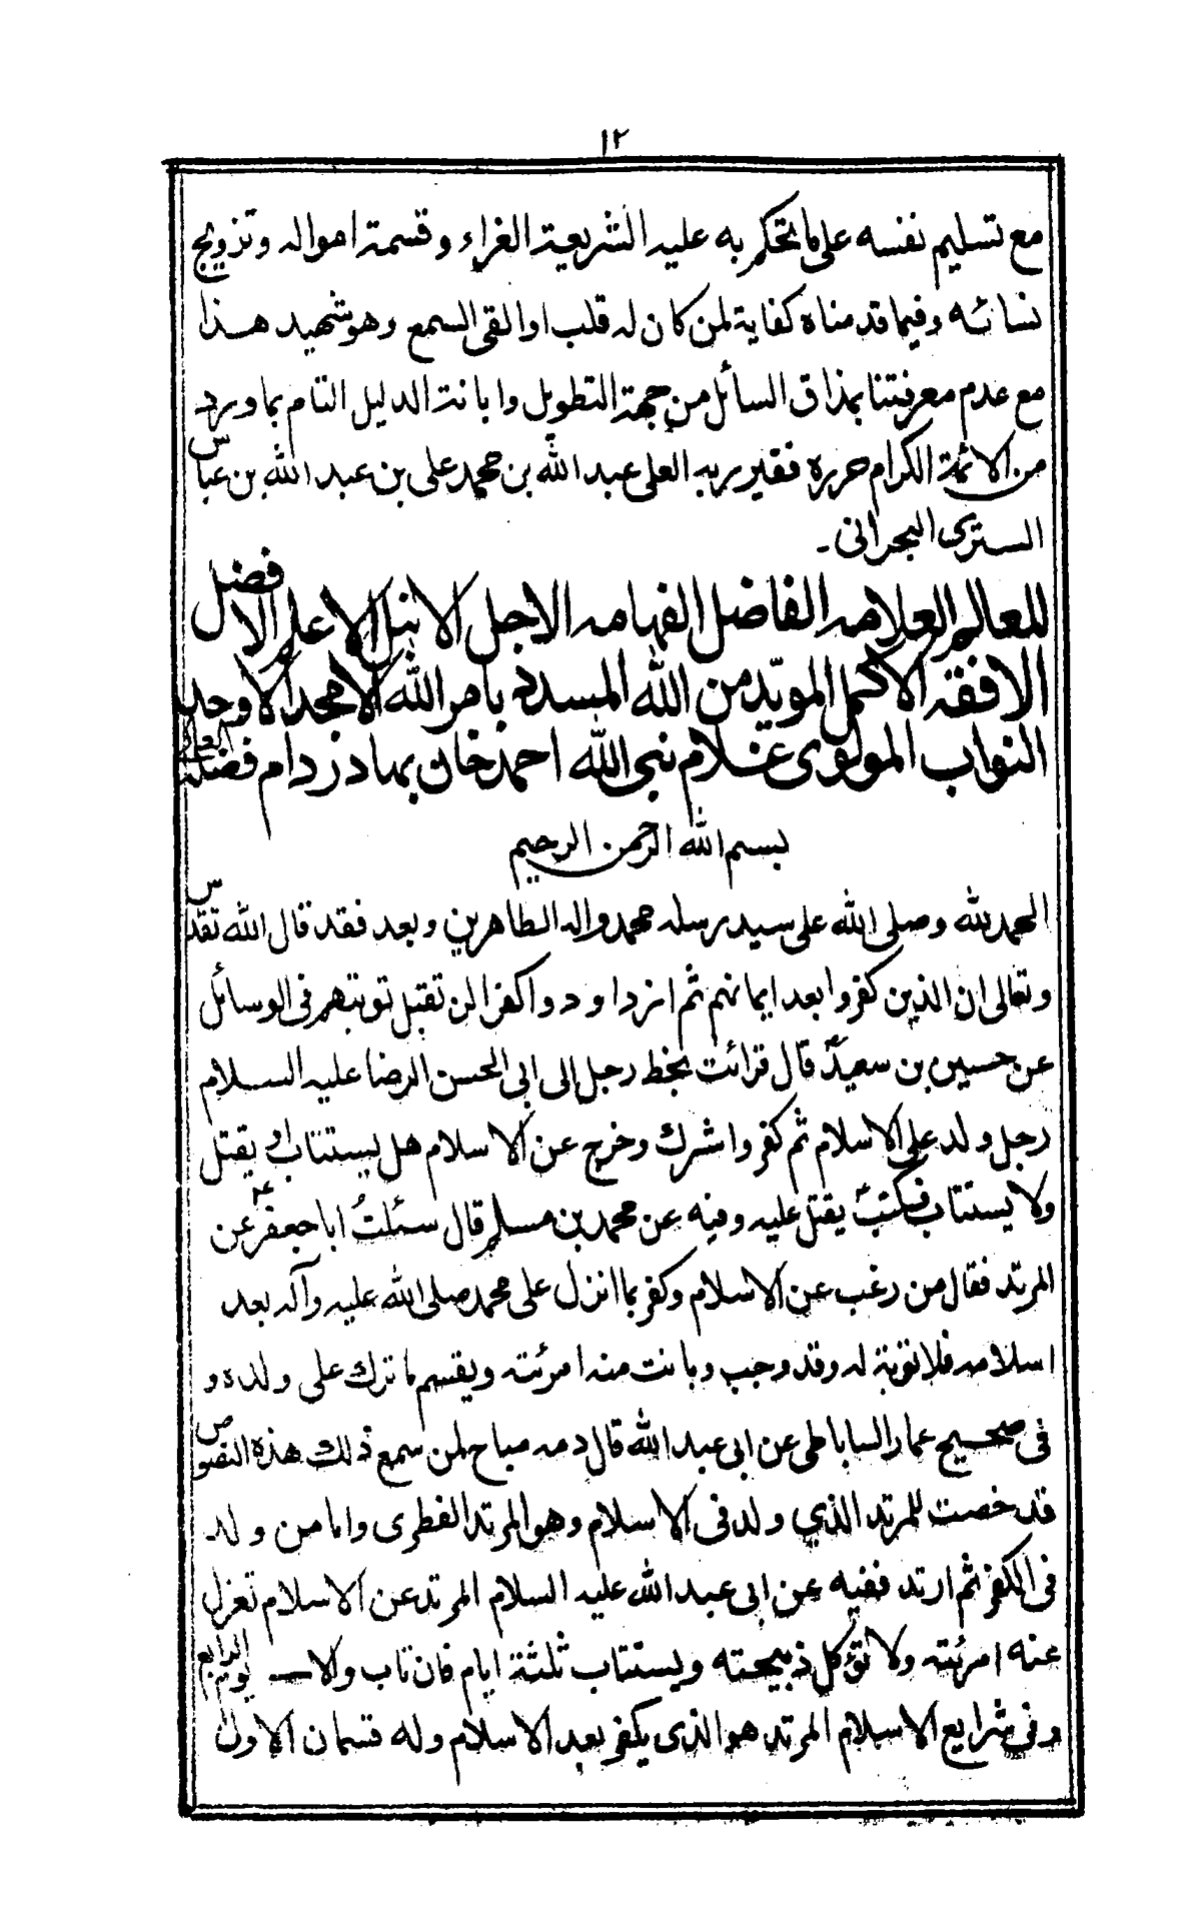 ١٢
مع تسليم نفسه على ما يحكم به عليه الشريعة الغراء و قسمة امواله وتزويج
نسائه وفيما قدمناه كفاية لمن كان له قلب او القى السمع وهو شهيد هذا
مع عدم معرفتنا بمذاق السائل من جهة التطويل وابانة الدليل التام بما ورد
من الائمة الكرام حرره فقير ربه العلى عبد الله بن محمد على بن عبد الله بن عباس
السترى البحرانى ـ
للعالم العلامه الفاضل الفهامه الاجل الانبل الاعلم الافضل
الافقه الاكمل المويّد من الله المسدد بامر الله الامجد الاوحد
النواب المولوى غلام نبى الله احمد خان بهادر دام فضله
بسم الله الرحمن الرحيم
الحمد لله وصلى الله على سيد رسله محمد واله الطاهرين وبعد فقد قال الله تقدس
وتعالى ان الذين كفروا بعد ايمانهم ثم ازدادو دوا كفرا لن تقبل توبتهم فى الوسائل
عن حسين بن سعيد قال قرائت بخط رجل الى ابى الحسن الرضا عليه السلام
رجل ولد على الاسلام ثم كفر واشرك وخرج عن الاسلام هل يستتاب او يقتل
ولا يستتاب فكتب يقتل عليه وفيه عن محمد بن مسلم قال سئلت ابا جعفر عن
المرتد فقال من رغب عن الاسلام وكفر بما انزل على محمد صلى الله عليه وآله بعد
اسلامه فلا توبة له وقد وجب وبانت منه امرئته ويقسم ما ترك على ولده و
فى صحيح عمار الساباطى عن ابى عبد الله قال دمه مباح لمن سمع ذلك هذه النصوص
قد خصت للمرتد الذي ولد فى الاسلام وهو المرتد الفطرى واما من ولد
فى الكفر ثم ارتد ففيه عن ابى عبد الله عليه السلام المرتد عن الاسلام تعزل
عنه امرئته ولا تؤكل ذبيحته ويستتاب ثلثة ايام فان تاب والا — يوم الرابع
وفى شرايع الاسلام المرتد هو الذى يكفر بعد الاسلام وله قسمان الاول